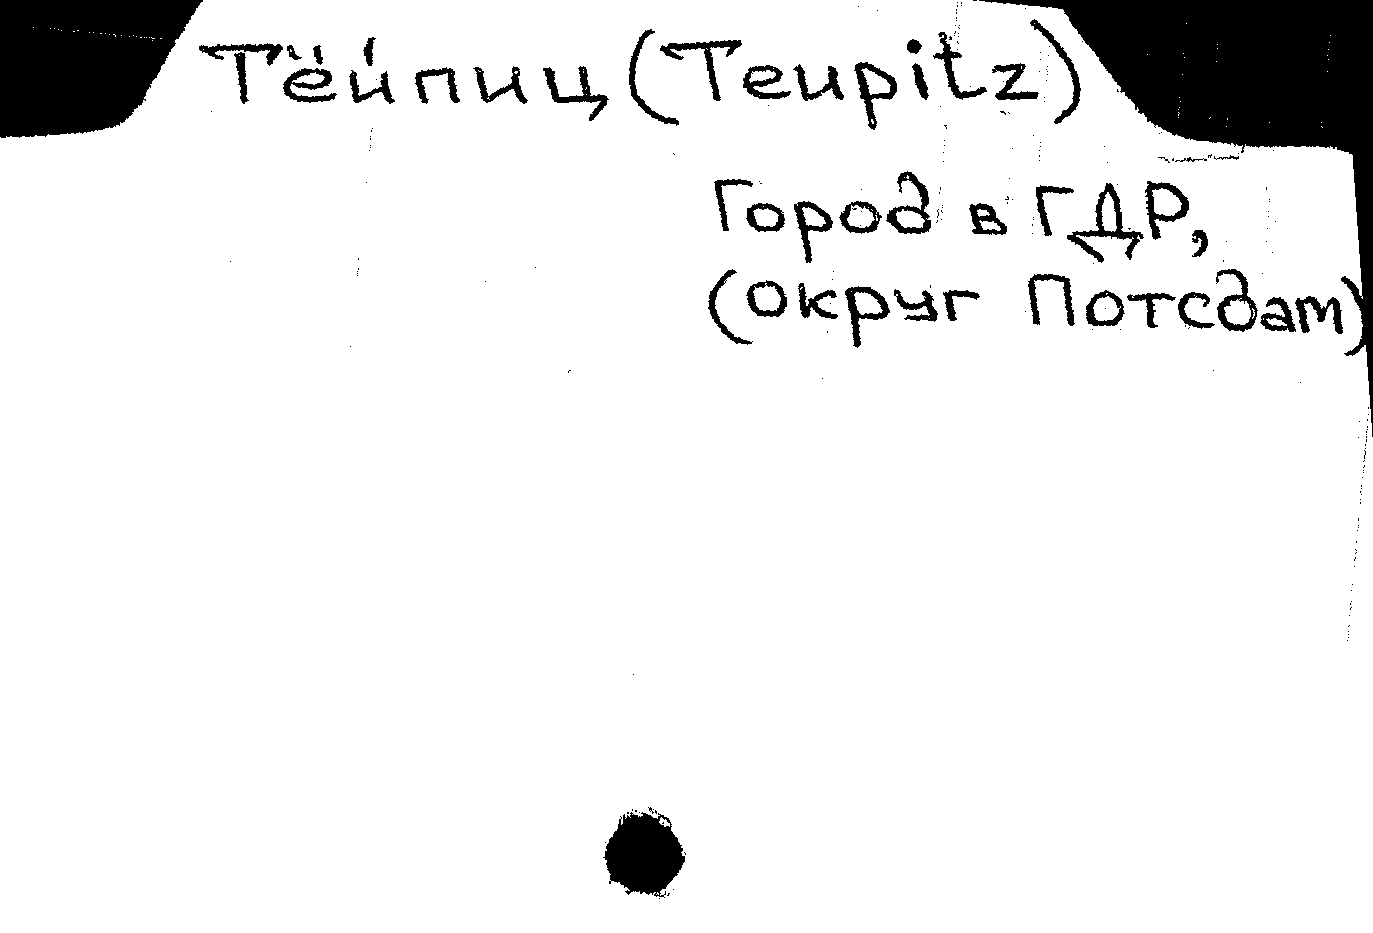 Тёйпиц (Teupitz)
Город в ГДР,
(округ Потсдам)